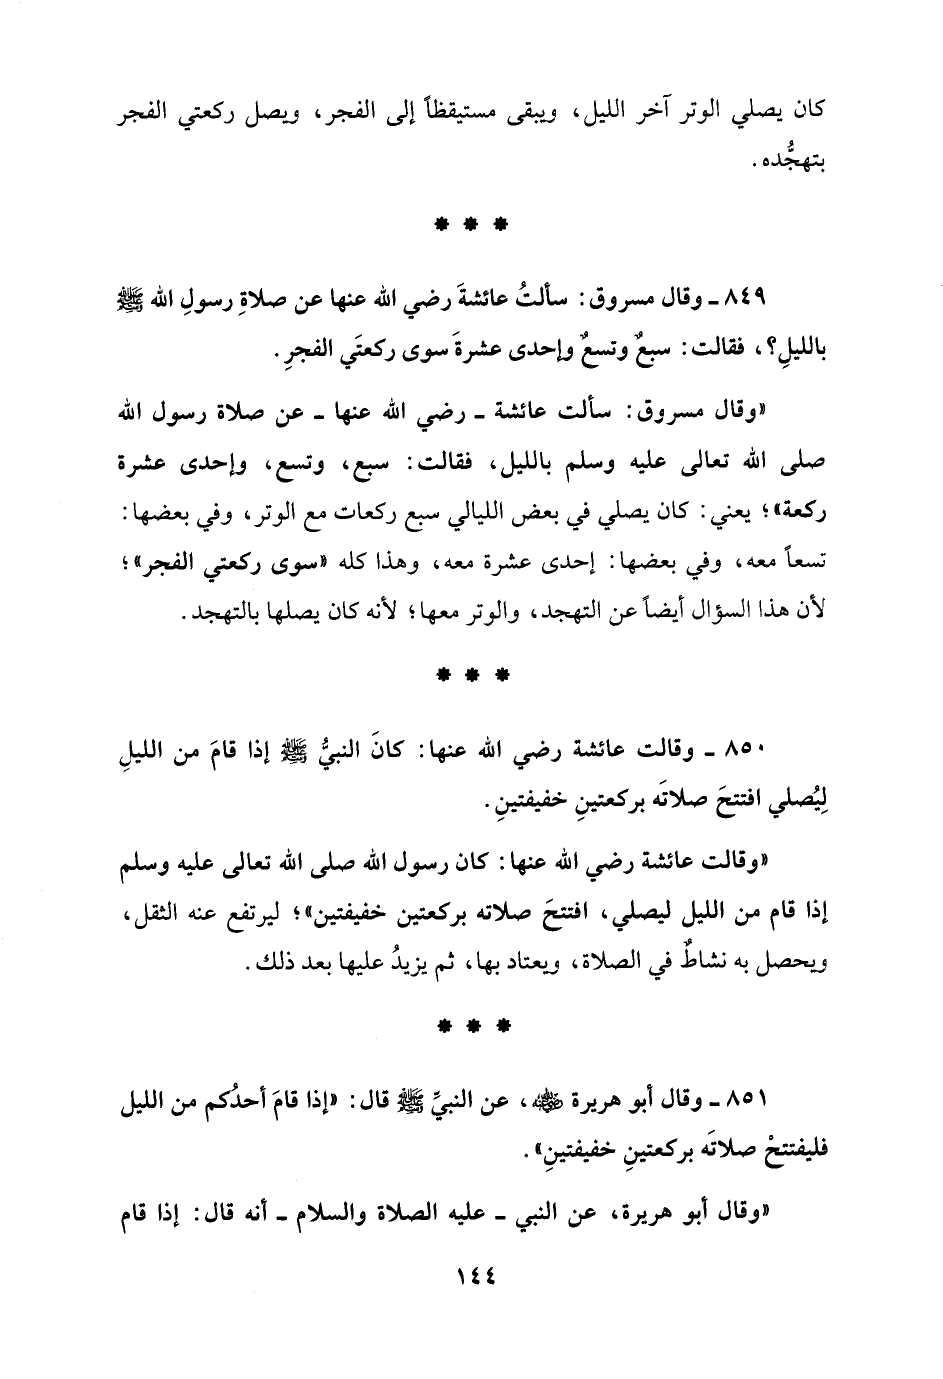 كان يصلي الوتر آخر الليل، ويبقى مستيقظاً إلى الفجر، ويصل ركعتي الفجر
بتهجُّده.
* * *
٨٤٩ ـ وقال مسروق: سألتُ عائشةَ رضي الله عنها عن صلاةِ رسولِ الله ﷺ
بالليلِ؟، فقالت: سبعٌ وتسعٌ وإحدى عشرةَ سوى ركعتَي الفجرِ.
«وقال مسروق: سألت عائشة ـ رضي الله عنها ـ عن صلاة رسول الله
صلى الله تعالى عليه وسلم بالليل، فقالت: سبع، وتسع، وإحدى عشرة
ركعة»؛ يعني: كان يصلي في بعض الليالي سبع ركعات مع الوتر، وفي بعضها:
تسعاً معه، وفي بعضها: إحدى عشرة معه، وهذا كله «سوى ركعتي الفجر»؛
لأن هذا السؤال أيضاً عن التهجد، والوتر معها؛ لأنه كان يصلها بالتهجد.
* * *
٨٥٠ ـ وقالت عائشة رضي الله عنها: كانَ النبيُّ ﷺ إذا قامَ من الليلِ
لِيُصلي افتتحَ صلاتَه بركعتينِ خفيفتينِ.
«وقالت عائشة رضي الله عنها: كان رسول الله صلى الله تعالى عليه وسلم
إذا قام من الليل ليصلي، افتتحَ صلاته بركعتين خفيفتين»؛ ليرتفع عنه الثقل،
ويحصل به نشاطٌ في الصلاة، ويعتاد بها، ثم يزيدُ عليها بعد ذلك.
* * *
٨٥١ ـ وقال أبو هريرة رضي الله عنه، عن النبيِّ ﷺ قال: «إذا قامَ أحدُكم من الليل
فليفتتحْ صلاتَه بركعتينِ خفيفتينِ».
«وقال أبو هريرة، عن النبي ـ عليه الصلاة والسلام ـ أنه قال: إذا قام
١٤٤